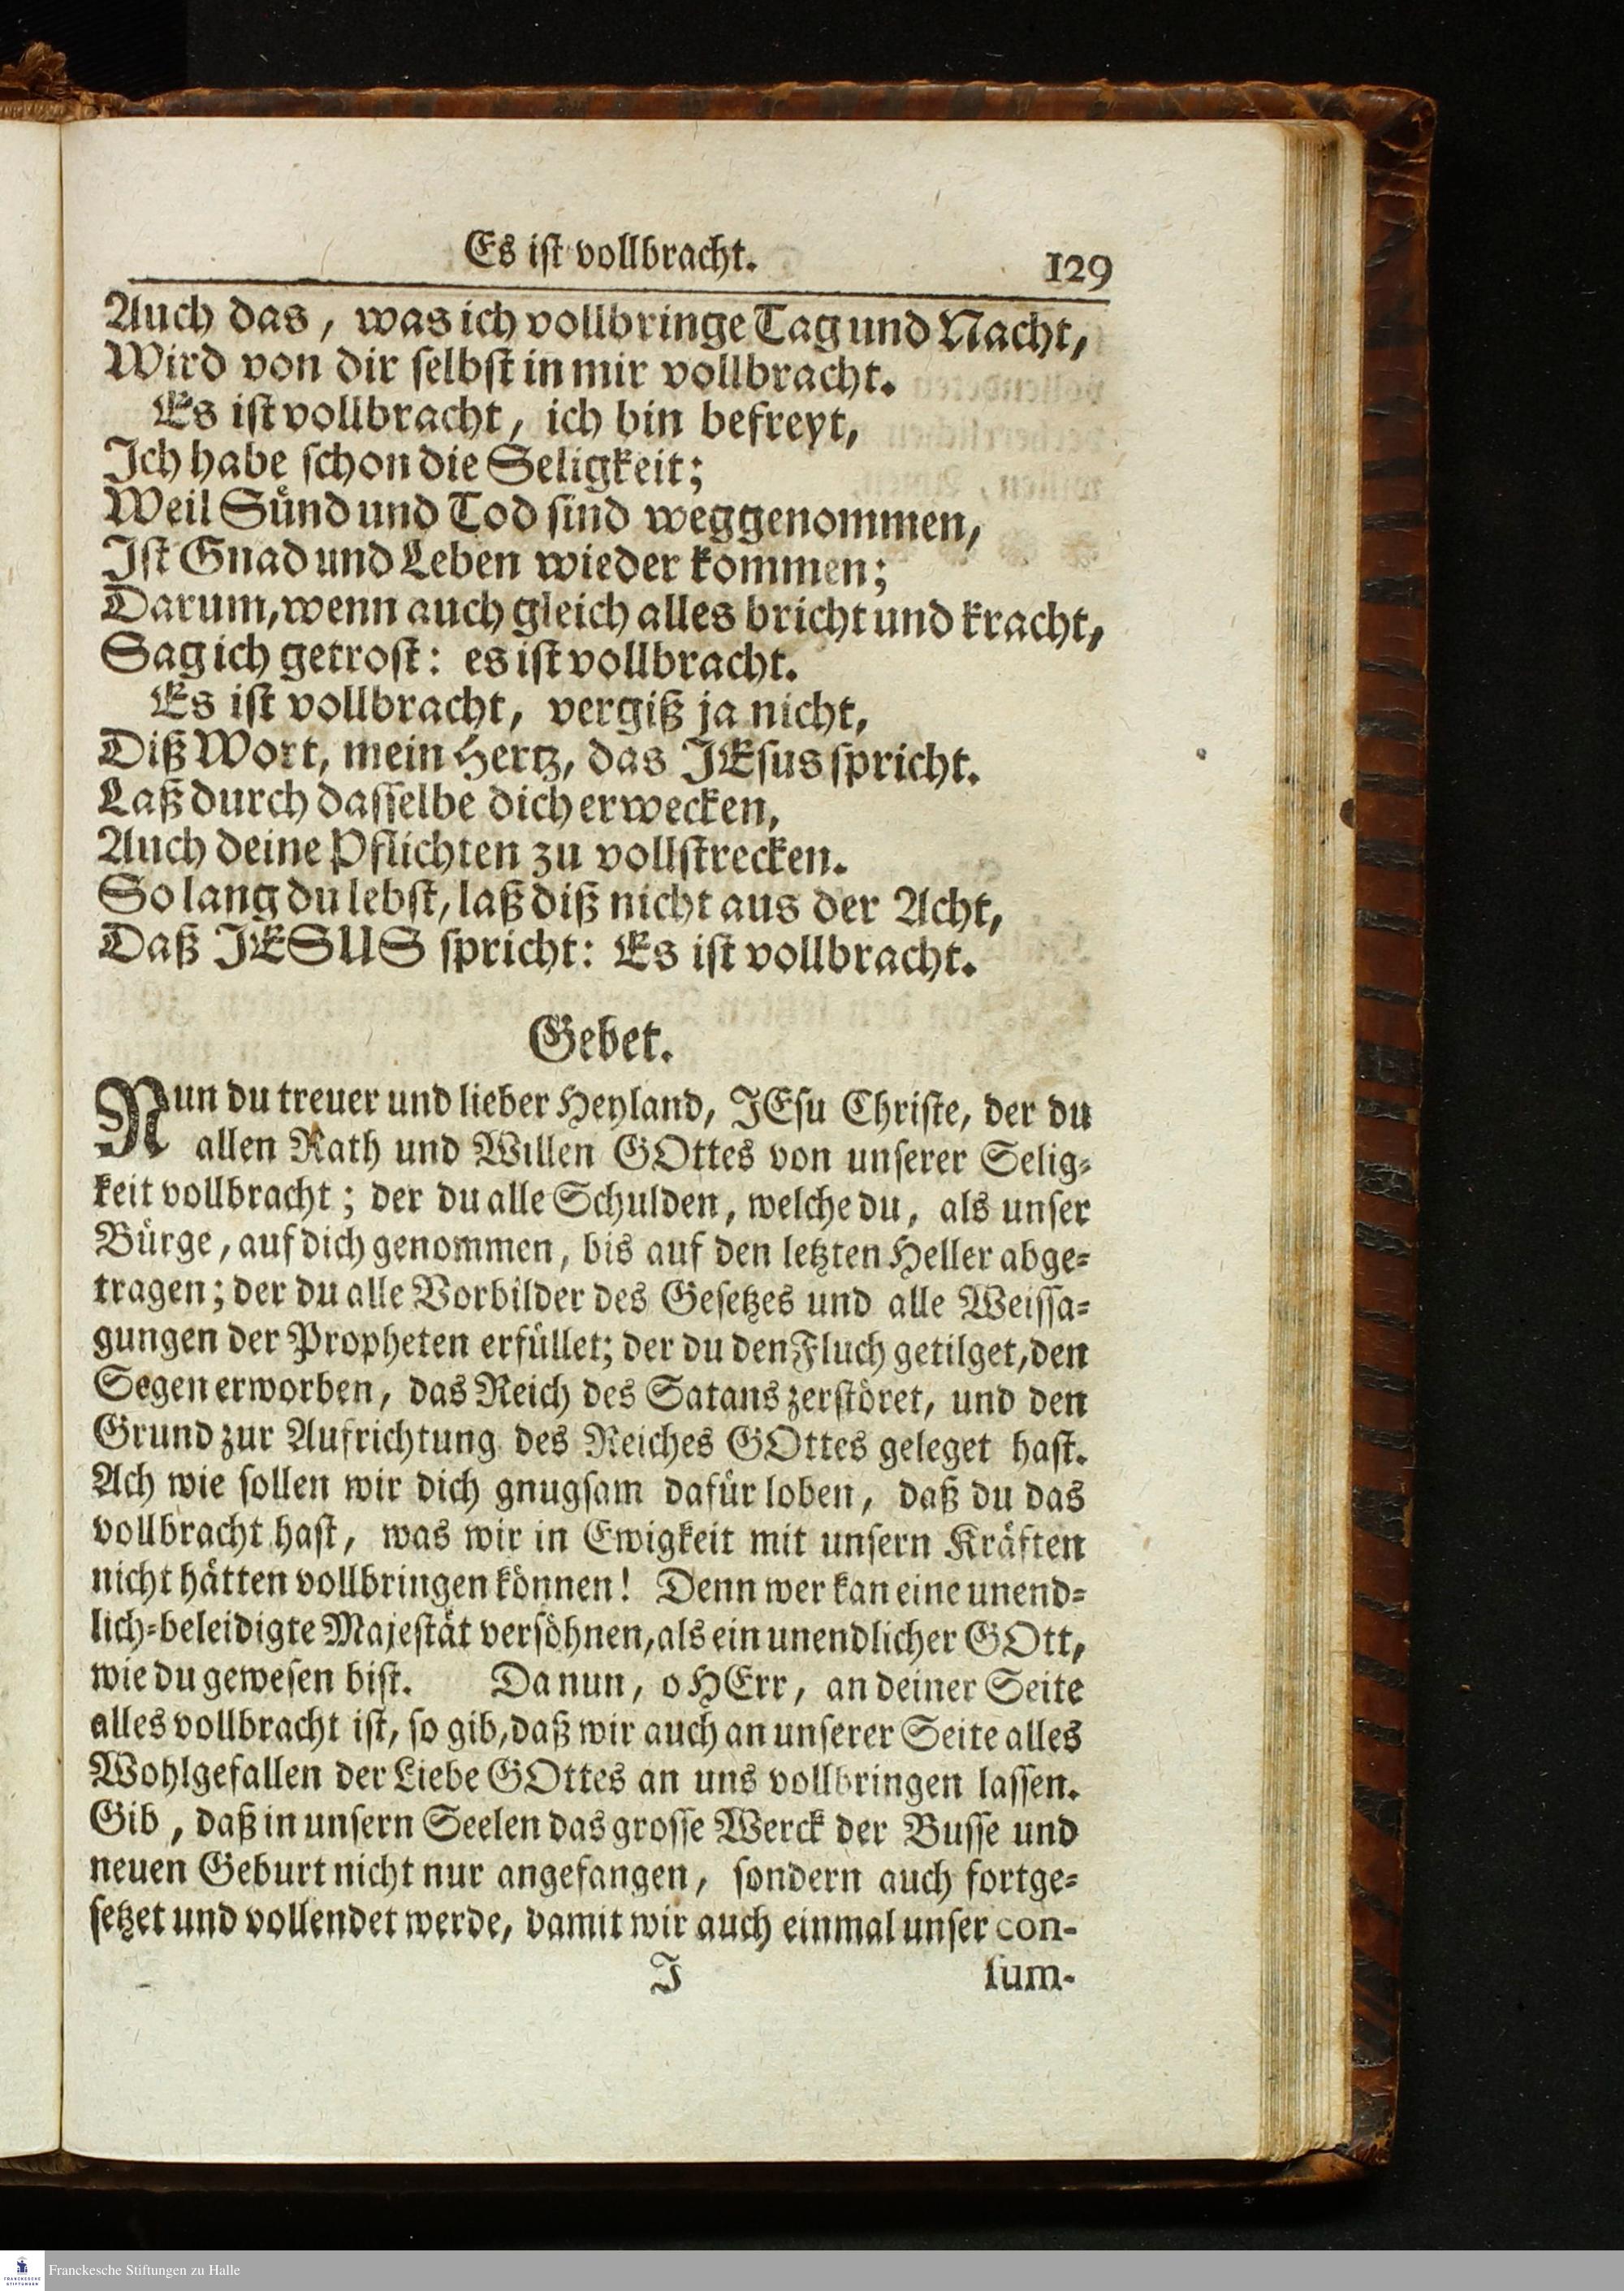 Es ist vollbracht. 129
Auch das, was ich vollbringe Tag und Nacht,
Wird von dir selbst in mir vollbracht.
Es ist vollbracht, ich bin befreyt,
Ich habe schon die Seligkeit;
Weil Sünd und Tod sind weggenommen,
Ist Gnad und Leben wieder kommen;
Darum, wenn auch gleich alles bricht und kracht,
Sag ich getrost: es ist vollbracht.
Es ist vollbracht, vergiß ja nicht,
Diß Wort, mein Hertz, das JEsus spricht.
Laß durch dasselbe dich erwecken,
Auch deine Pflichten zu vollstrecken.
So lang du lebst, laß diß nicht aus der Acht,
Daß JESUS spricht: Es ist vollbracht.
Gebet.
Nun du treuer und lieber Heyland, JEsu Christe, der du
allen Rath und Willen GOttes von unserer Selig-
keit vollbracht; der du alle Schulden, welche du, als unser
Bürge, auf dich genommen, bis auf den letzten Heller abge-
tragen; der du alle Vorbilder des Gesetzes und alle Weissa-
gungen der Propheten erfüllet; der du den Fluch getilget, den
Segen erworben, das Reich des Satans zerstöret, und den
Grund zur Aufrichtung des Reiches GOttes geleget hast.
Ach wie sollen wir dich gnugsam dafür loben, daß du das
vollbracht hast, was wir in Ewigkeit mit unsern Kräften
nicht hätten vollbringen können! Denn wer kan eine unend-
lich-beleidigte Majestät versöhnen, als ein unendlicher GOtt,
wie du gewesen bist. Da nun, o HErr, an deiner Seite
alles vollbracht ist, so gib, daß wir auch an unserer Seite alles
Wohlgefallen der Liebe GOttes an uns vollbringen lassen.
Gib, daß in unsern Seelen das grosse Werck der Busse und
neuen Geburt nicht nur angefangen, sondern auch fortge-
setzet und vollendet werde, damit wir auch einmal unser con-
J sum-
FRANCKESCHE STIFTUNGEN
Franckesche Stiftungen zu Halle